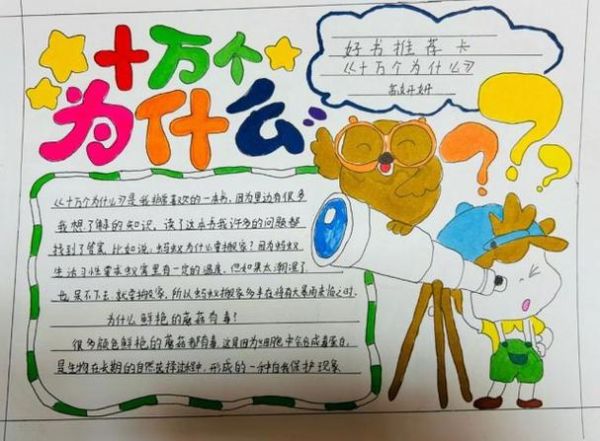 十万个
为什么
好书推荐卡
《十万个为什么》
《十万个为什么》是我非常喜欢的一本书，因为里边有很多
我想了解的知识，读了这本书我许多的问题都
找到了答案，比如说，蚂蚁为什么要搬家？因为蚂蚁
生活习性要求蚁窝里有一定的温度，但如果太潮湿了
也呆不下去，就要搬家，所以蚂蚁搬家多半在将有大暴雨来临之时。
为什么鲜艳的蘑菇有毒？
很多颜色鲜艳的蘑菇都有毒，这是因为细胞中会合成毒蛋白，
是生物在长期的自然选择过程中，形成的一种自我保护现象